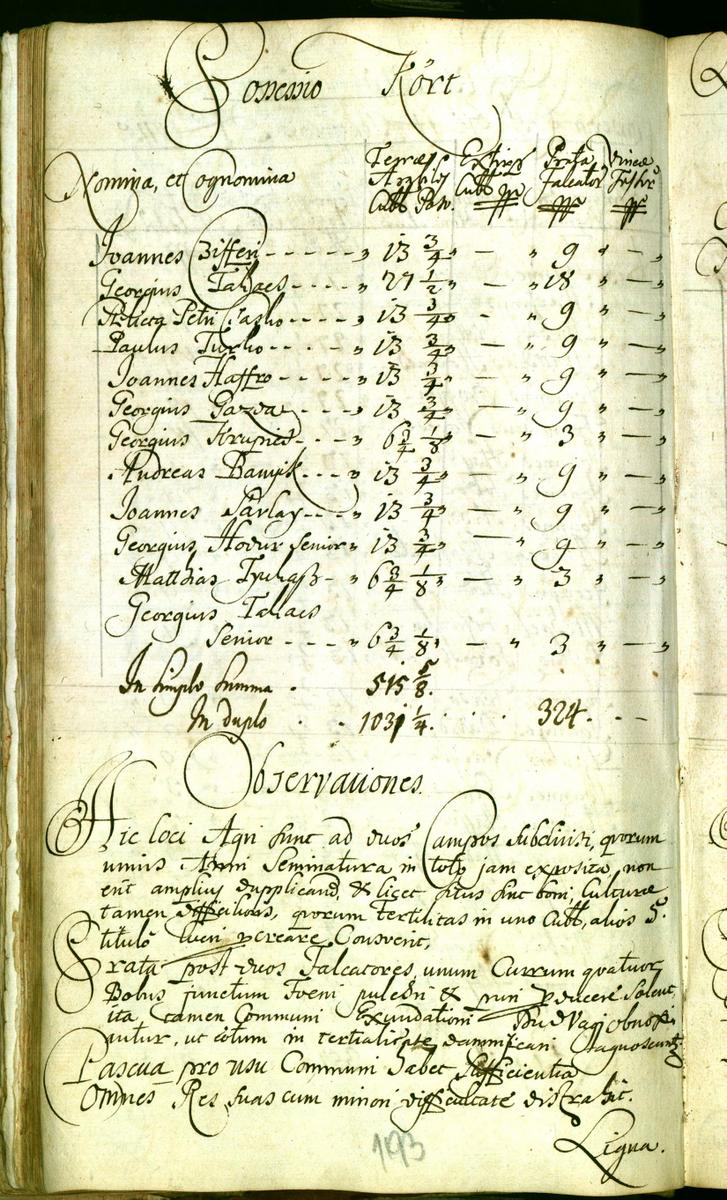 Possessio Kört.
Nomina, et Cognomina
Terræ Extirp Prata Vineæ
Cubb Falcator Fossor
Cubb Pos.
Joannes Zifferi - - - - - „ 13 3/4 „ — „ 9 „ — „
Georgius - - - - „ 27 1/2 „ — „ 18 „ — „
Relicta Petri - - - - „ 13 3/4 „ — „ 9 „ — „
Paulus - - - - „ 13 3/4 „ — „ 9 „ — „
Joannes Haffro - - - - „ 13 3/4 „ — „ 9 „ — „
Georgius Gazda - - - - „ 13 3/4 „ — „ 9 „ — „
Georgius - - - „ 6 3/4 1/8 „ — „ 3 „ — „
Andreas Banyik - - - „ 13 3/4 „ — „ 9 „ — „
Joannes Sarlay - - - „ 13 3/4 „ — „ 9 „ — „
Georgius Hodur Senior „ 13 3/4 „ — „ 9 „ — „
Matthias - „ 6 3/4 1/8 „ — „ 3 „ — „
Georgius
Senior - - - „ 6 3/4 1/8 „ — „ 3 „ — „
In simplo summa . 515 5/8.
In duplo . . 1031 1/4. . . 324. - -
Observationes.
Hic loci Agri sunt ad duos Campos subdivisi, quorum
unius Anni Seminatura in toto jam exposita, non
erit amplius dupplicand, & licet situs sint boni, Culturæ
tamen difficilioris, quorum fertilitas in uno Cubb, alios 5.
titulo lucri pcreare Consvevit,
Prata post duos Falcatores, unum Currum quatuor
Bobus junctum Foeni pulchri & puri pducere Solent,
ita tamen Communi Exundationi Fluv Vagi obnoxi
untur, ut totum in tertialite damnificari
Pascua pro usu Communi habet Sufficientia
Omnes Res suas cum minori difficultate distrahit.
Ligna.
193